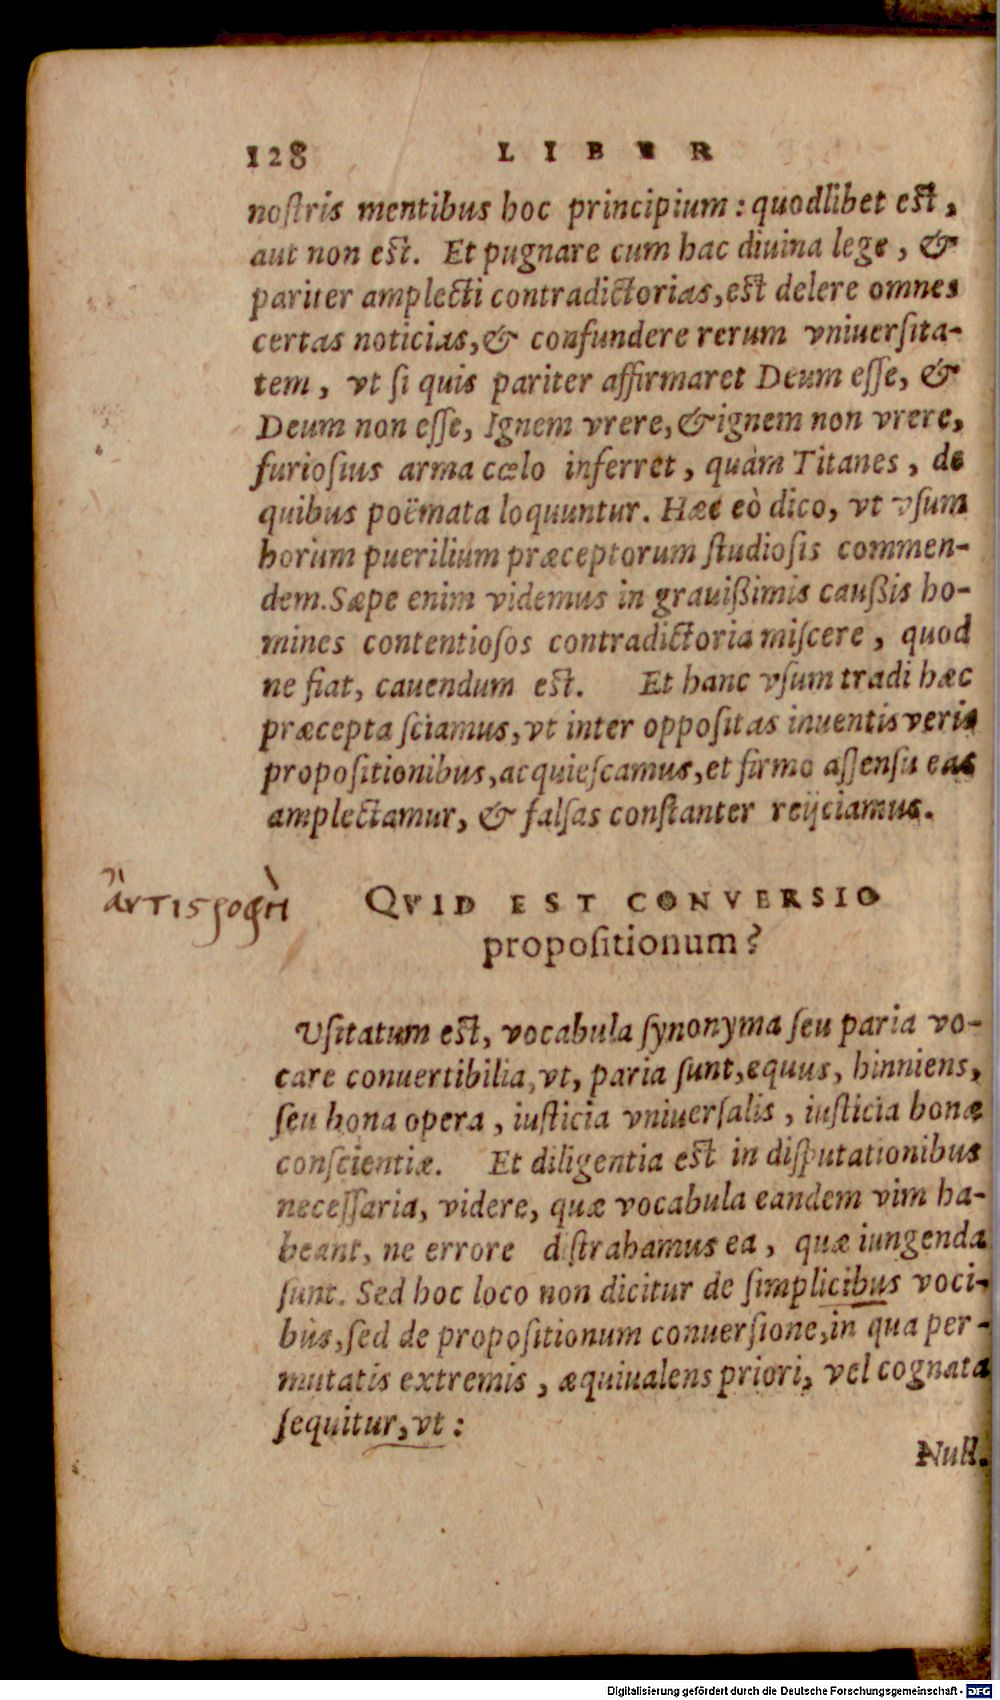 128 LIBER
nostris mentibus hoc principium: quodlibet est,
aut non est. Et pugnare cum hac diuina lege, &
pariter amplecti contradictorias, est delere omnes
certas noticias, & confundere rerum vniuersita-
tem, vt si quis pariter affirmaret Deum esse, &
Deum non esse, Ignem vrere, & ignem non vrere,
furiosius arma cœlo inferret, quàm Titanes, de
quibus poëmata loquuntur. Hæc eò dico, vt vsum
horum puerilium præceptorum studiosis commen-
dem. Sæpe enim videmus in grauißimis caußis ho-
mines contentiosos contradictoria miscere, quod
ne fiat, cauendum est. Et hanc vsum tradi hæc
præcepta sciamus, vt inter oppositas inuentis veris
propositionibus, acquiescamus, et firmo assensu eas
amplectamur, & falsas constanter reijciamus.
QVID EST CONVERSIO
propositionum?
Vsitatum est, vocabula synonyma seu paria vo-
care conuertibilia, vt, paria sunt, equus, hinniens,
seu bona opera, iusticia vniuersalis, iusticia bonæ
conscientiæ. Et diligentia est in disputationibus
necessaria, videre, quæ vocabula eandem vim ha-
beant, ne errore distrahamus ea, quæ iungenda
sunt. Sed hoc loco non dicitur de simplicibus voci-
bus, sed de propositionum conuersione, in qua per-
mutatis extremis, æquiualens priori, vel cognata
sequitur, vt:
Null.
Digitalisierung gefördert durch die Deutsche Forschungsgemeinschaft - DFG